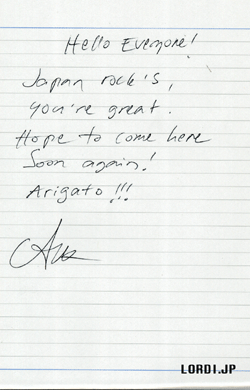 Hello Everyone!
Japan rock's,
you're great.
Hope to come here
Soon again!
Arigato !!!
LORDI.JP